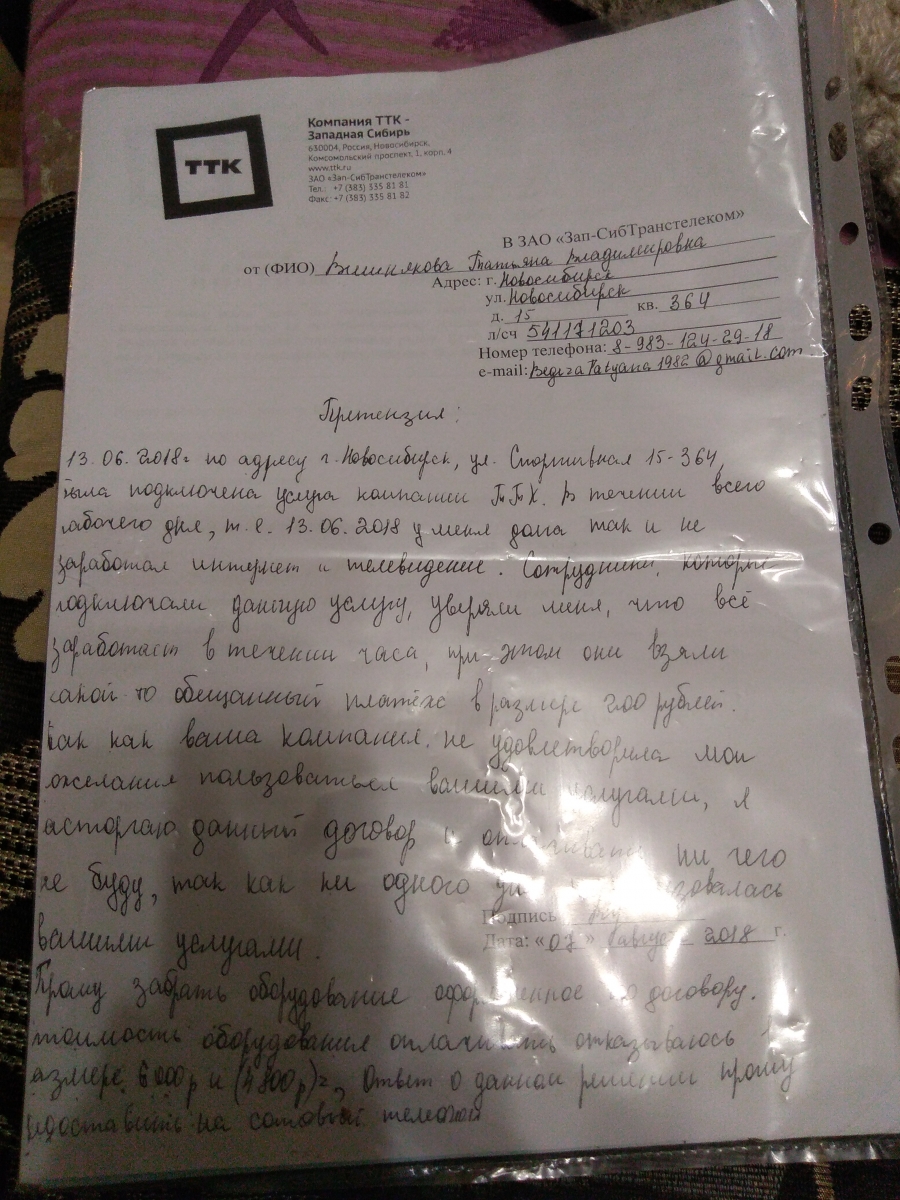 ТТК
Компания ТТК -
Западная Сибирь
630004, Россия, Новосибирск,
Комсомольский проспект, 1, корп. 4
www.ttk.ru
ЗАО «Зап-СибТранстелеком»
Тел.: +7 (383) 335 81 81
Факс: +7 (383) 335 81 82
В ЗАО «Зап-СибТранстелеком»
от (ФИО) Вишнякова Татьяна Владимировна
Адрес: г. Новосибирск
ул. Новосибирск
д. 15 кв. 364
л/сч 541171203
Номер телефона: 8-983-124-29-18
e-mail: 1982@gmail.com
Претензия:
13.06.2018г по адресу г. Новосибирск, ул. Спортивная 15-364,
была подключена услуга компании Т.Т.К. В течении всего
рабочего дня, т.е. 13.06.2018 у меня дома так и не
заработал интернет и телевидение. Сотрудники, которые
подключали данную услугу, уверяли меня, что всё
заработает в течении часа, при этом они взяли
какой-то обещанный платёж в размере 200 рублей.
Так как ваша компания, не удовлетворила мои
желания пользоваться вашими услугами, я
расторгаю данный договор и оплачивать ни чего
не буду, так как ни одного
вашими услугами.
Подпись
Дата: «07» август 2018 г.
Прошу забрать оборудование оформленное по договору.
Стоимость оборудования оплачивать отказываюсь
размере 6000р и (4800р) Ответ о данном решении прошу
предоставить на сотовый телефон